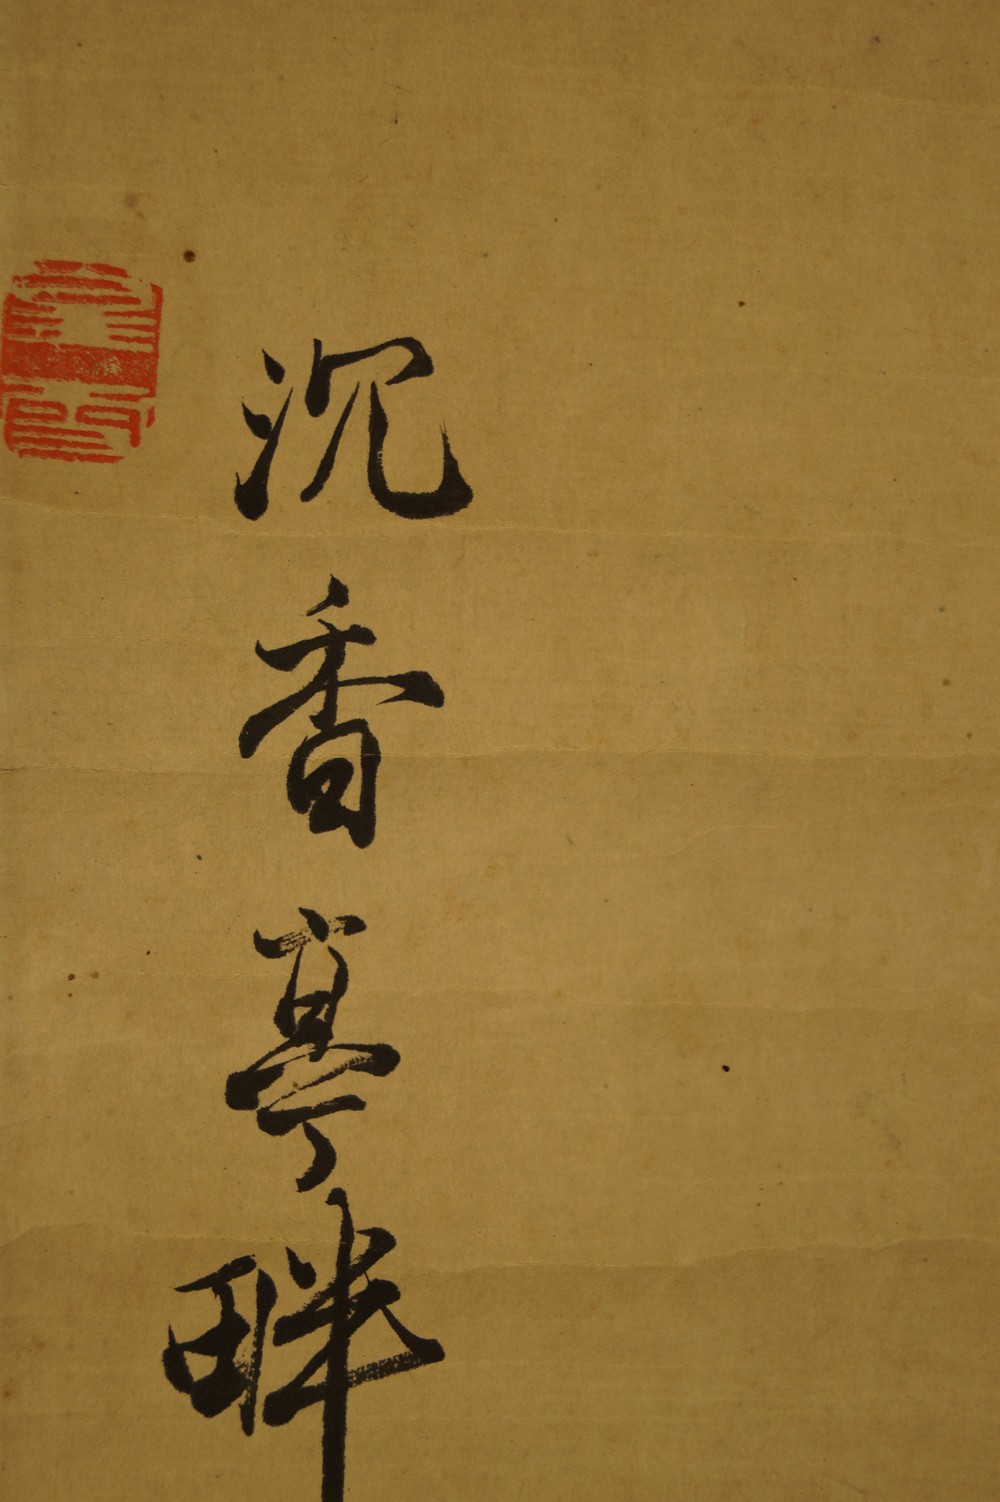 沉香亭畔